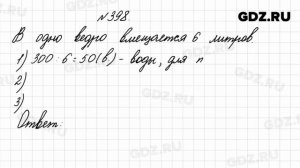 GDZ.RU
№398
В одно ведро вмещается 6 литров
1) 300 : 6 = 50 (в) - воды, для п
2)
3)
Ответ: